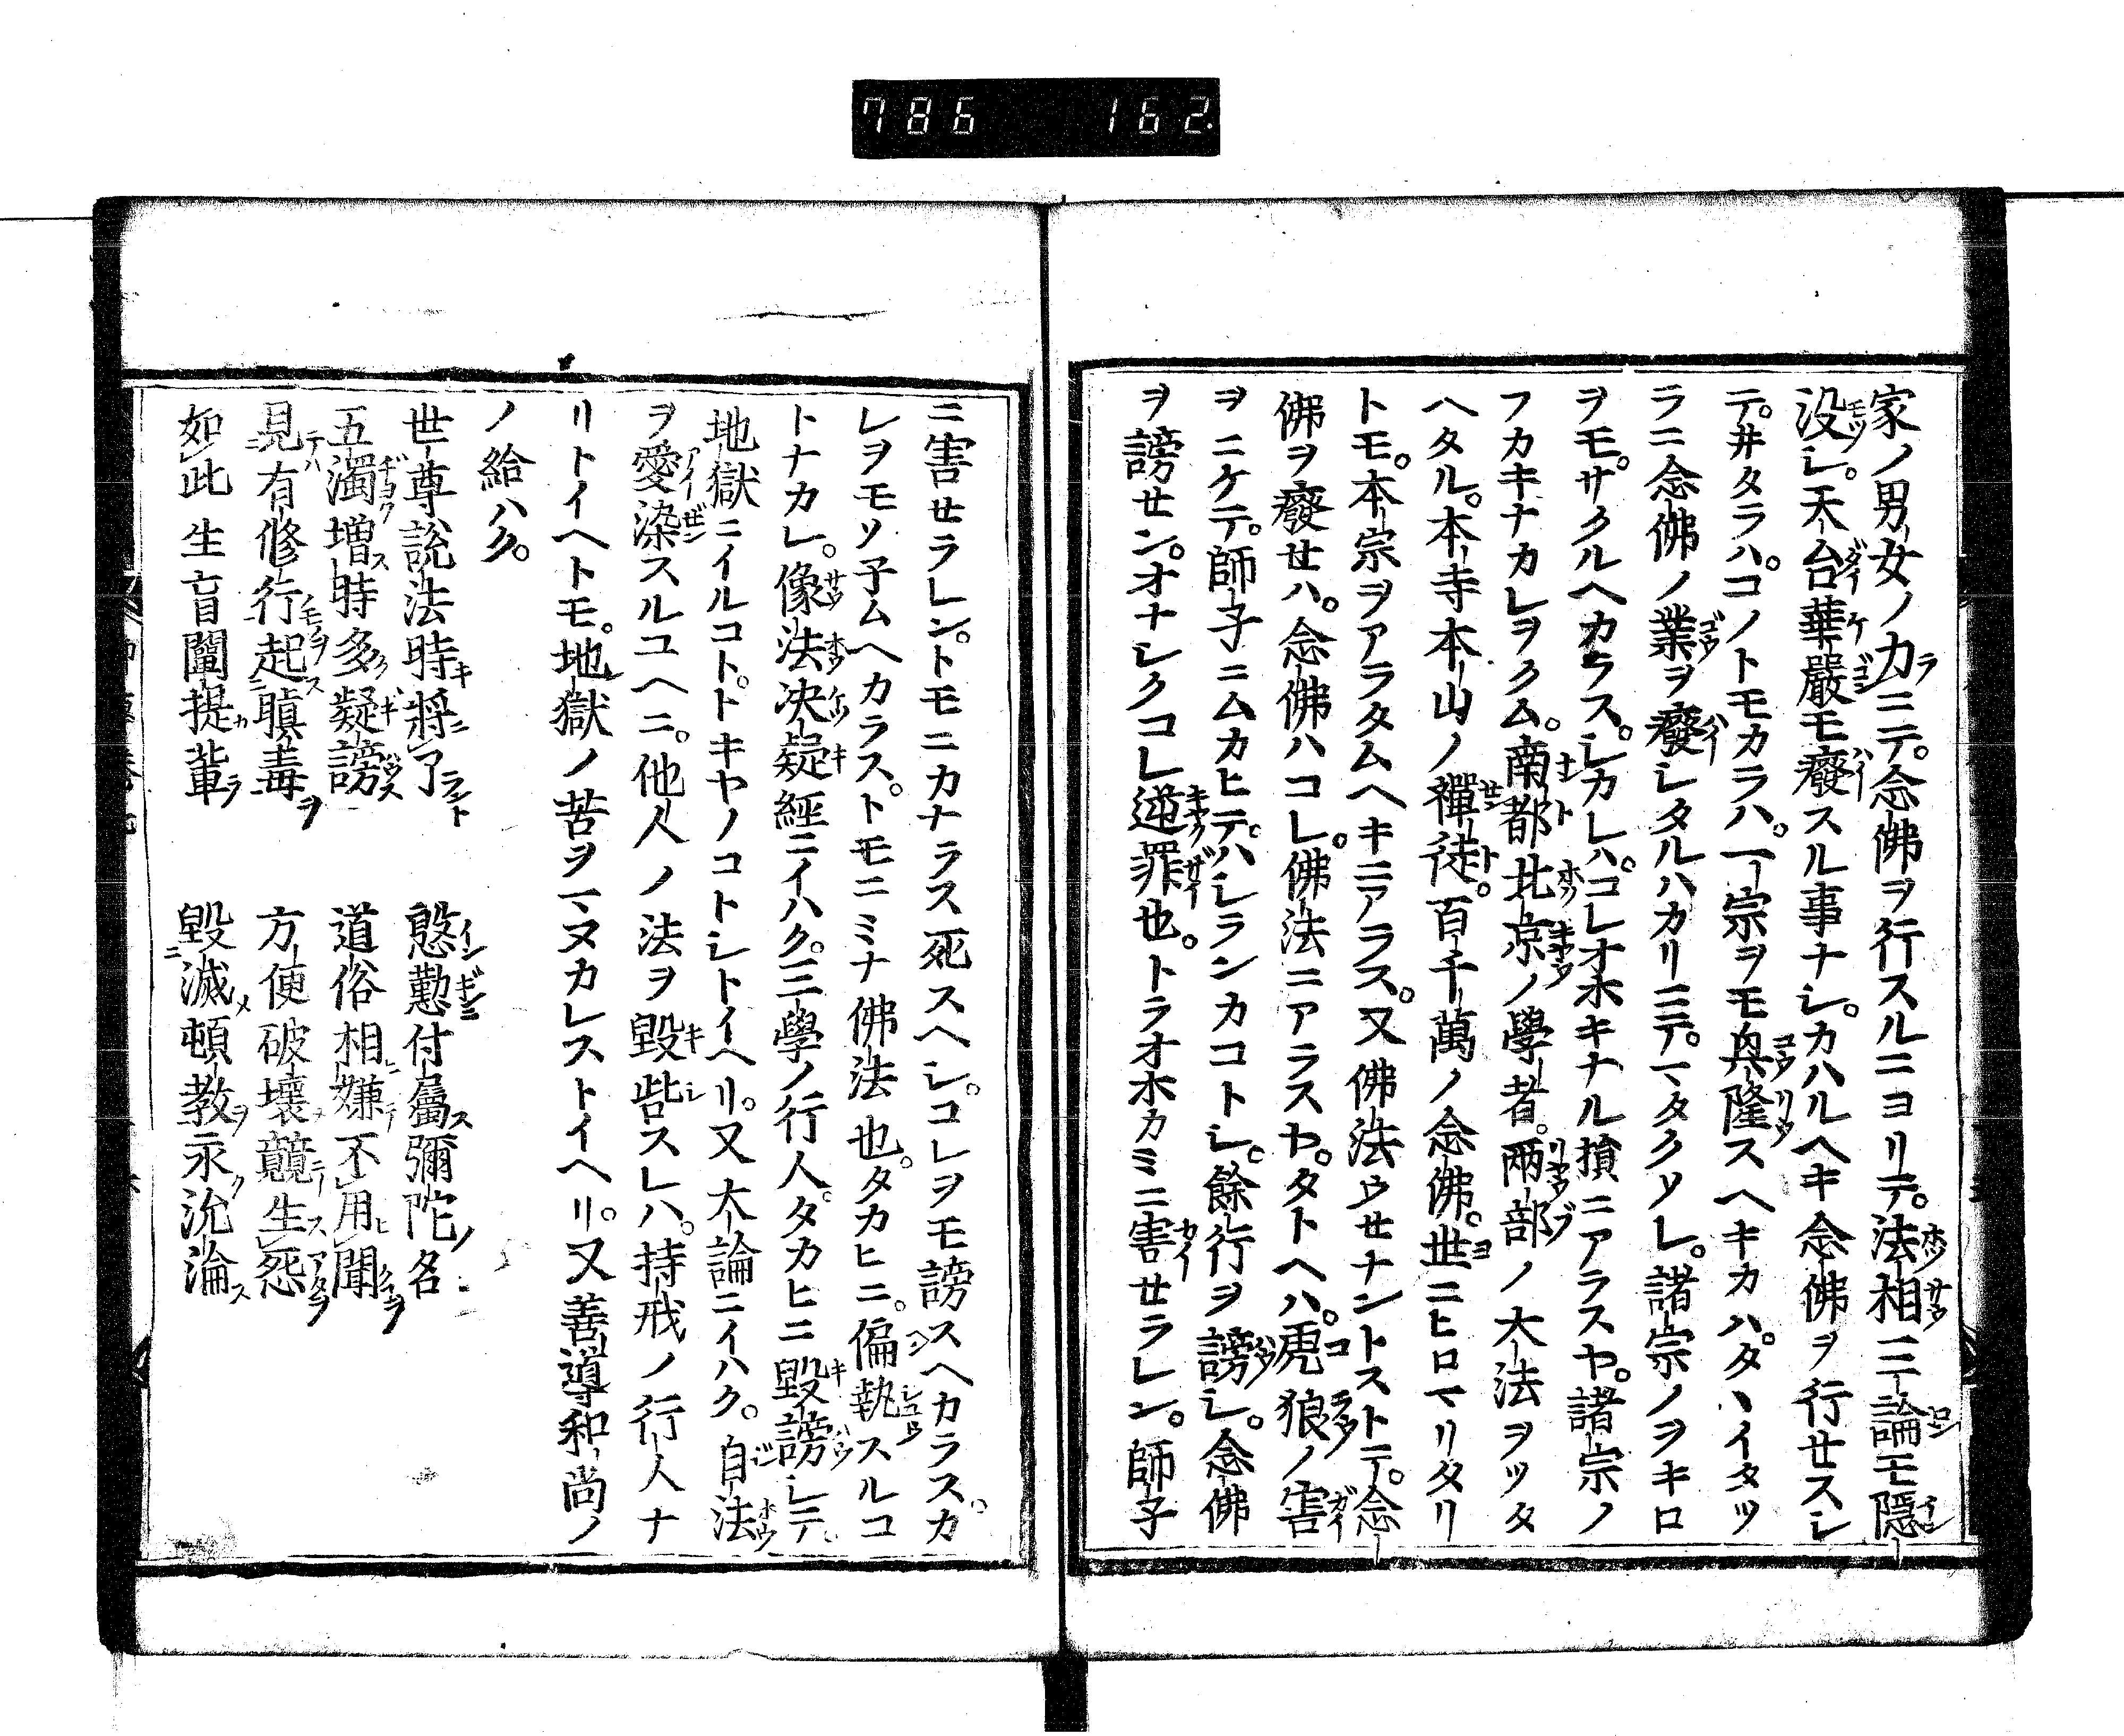 786 162
家ノ男女ノカラニテ。念佛ヲ行スルニヨリテ。法相三論モ隠
没シ。天台華嚴モ癈スル事ナシ。カハルヘキ念佛ヲ行セスシ
テ。井タラハ。コノトモカラハ。一宗ヲモ興隆スヘキカハ。タヽイタツ
ラニ念佛ノ業ヲ癈シタルハカリニテ。マタクソレ。諸宗ノヲキロ
ヲモ。サクルヘカラス。シカレハ。コレオホキナル損ニアラスヤ。諸宗ノ
フカキナカレヲクム。南都北京ノ學者。兩部ノ大法ヲツタ
ヘタル。本寺本山ノ禪徒。百千萬ノ念佛。世ニヒロマリタリ
トモ。本宗ヲアラタムヘキニアラス。又佛法ウセナントストテ。念
佛ヲ癈セハ。念佛ハコレ。佛法ニアラスヤ。タトヘハ。虎狼ノ害
ヲニケテ。師子ニムカヒテ。ハシランカコトシ。餘行ヲ謗シ。念佛
ヲ謗セン。オナシクコレ逆罪也。トラオホカミニ害セラレン。師子
ニ害セラレン。トモニカナラス死スヘシ。コレヲモ謗スヘカラス。カ
レヲモソ子ムヘカラス。トモニミナ佛法也。タカヒニ。偏執スルコ
トナカレ。像法決疑經ニイハク。三學ノ行人。タカヒニ毀謗シテ。
地獄ニイルコト。トキヤノコトシトイヘリ。又大論ニイハク。自法
ヲ愛染スルユヘニ。他人ノ法ヲ毀呰スレハ。持戒ノ行人ナ
リトイヘトモ。地獄ノ苦ヲマヌカレストイヘリ。又善導和尚ノ
ノ給ハク。
世尊說法時將了 慇懃付屬彌陀名
五濁增時多疑謗 道俗相嫌不用聞
見有修行起瞋毒 方便破壞競生怨
如此生盲闡提輩 毀滅頓教永沉淪